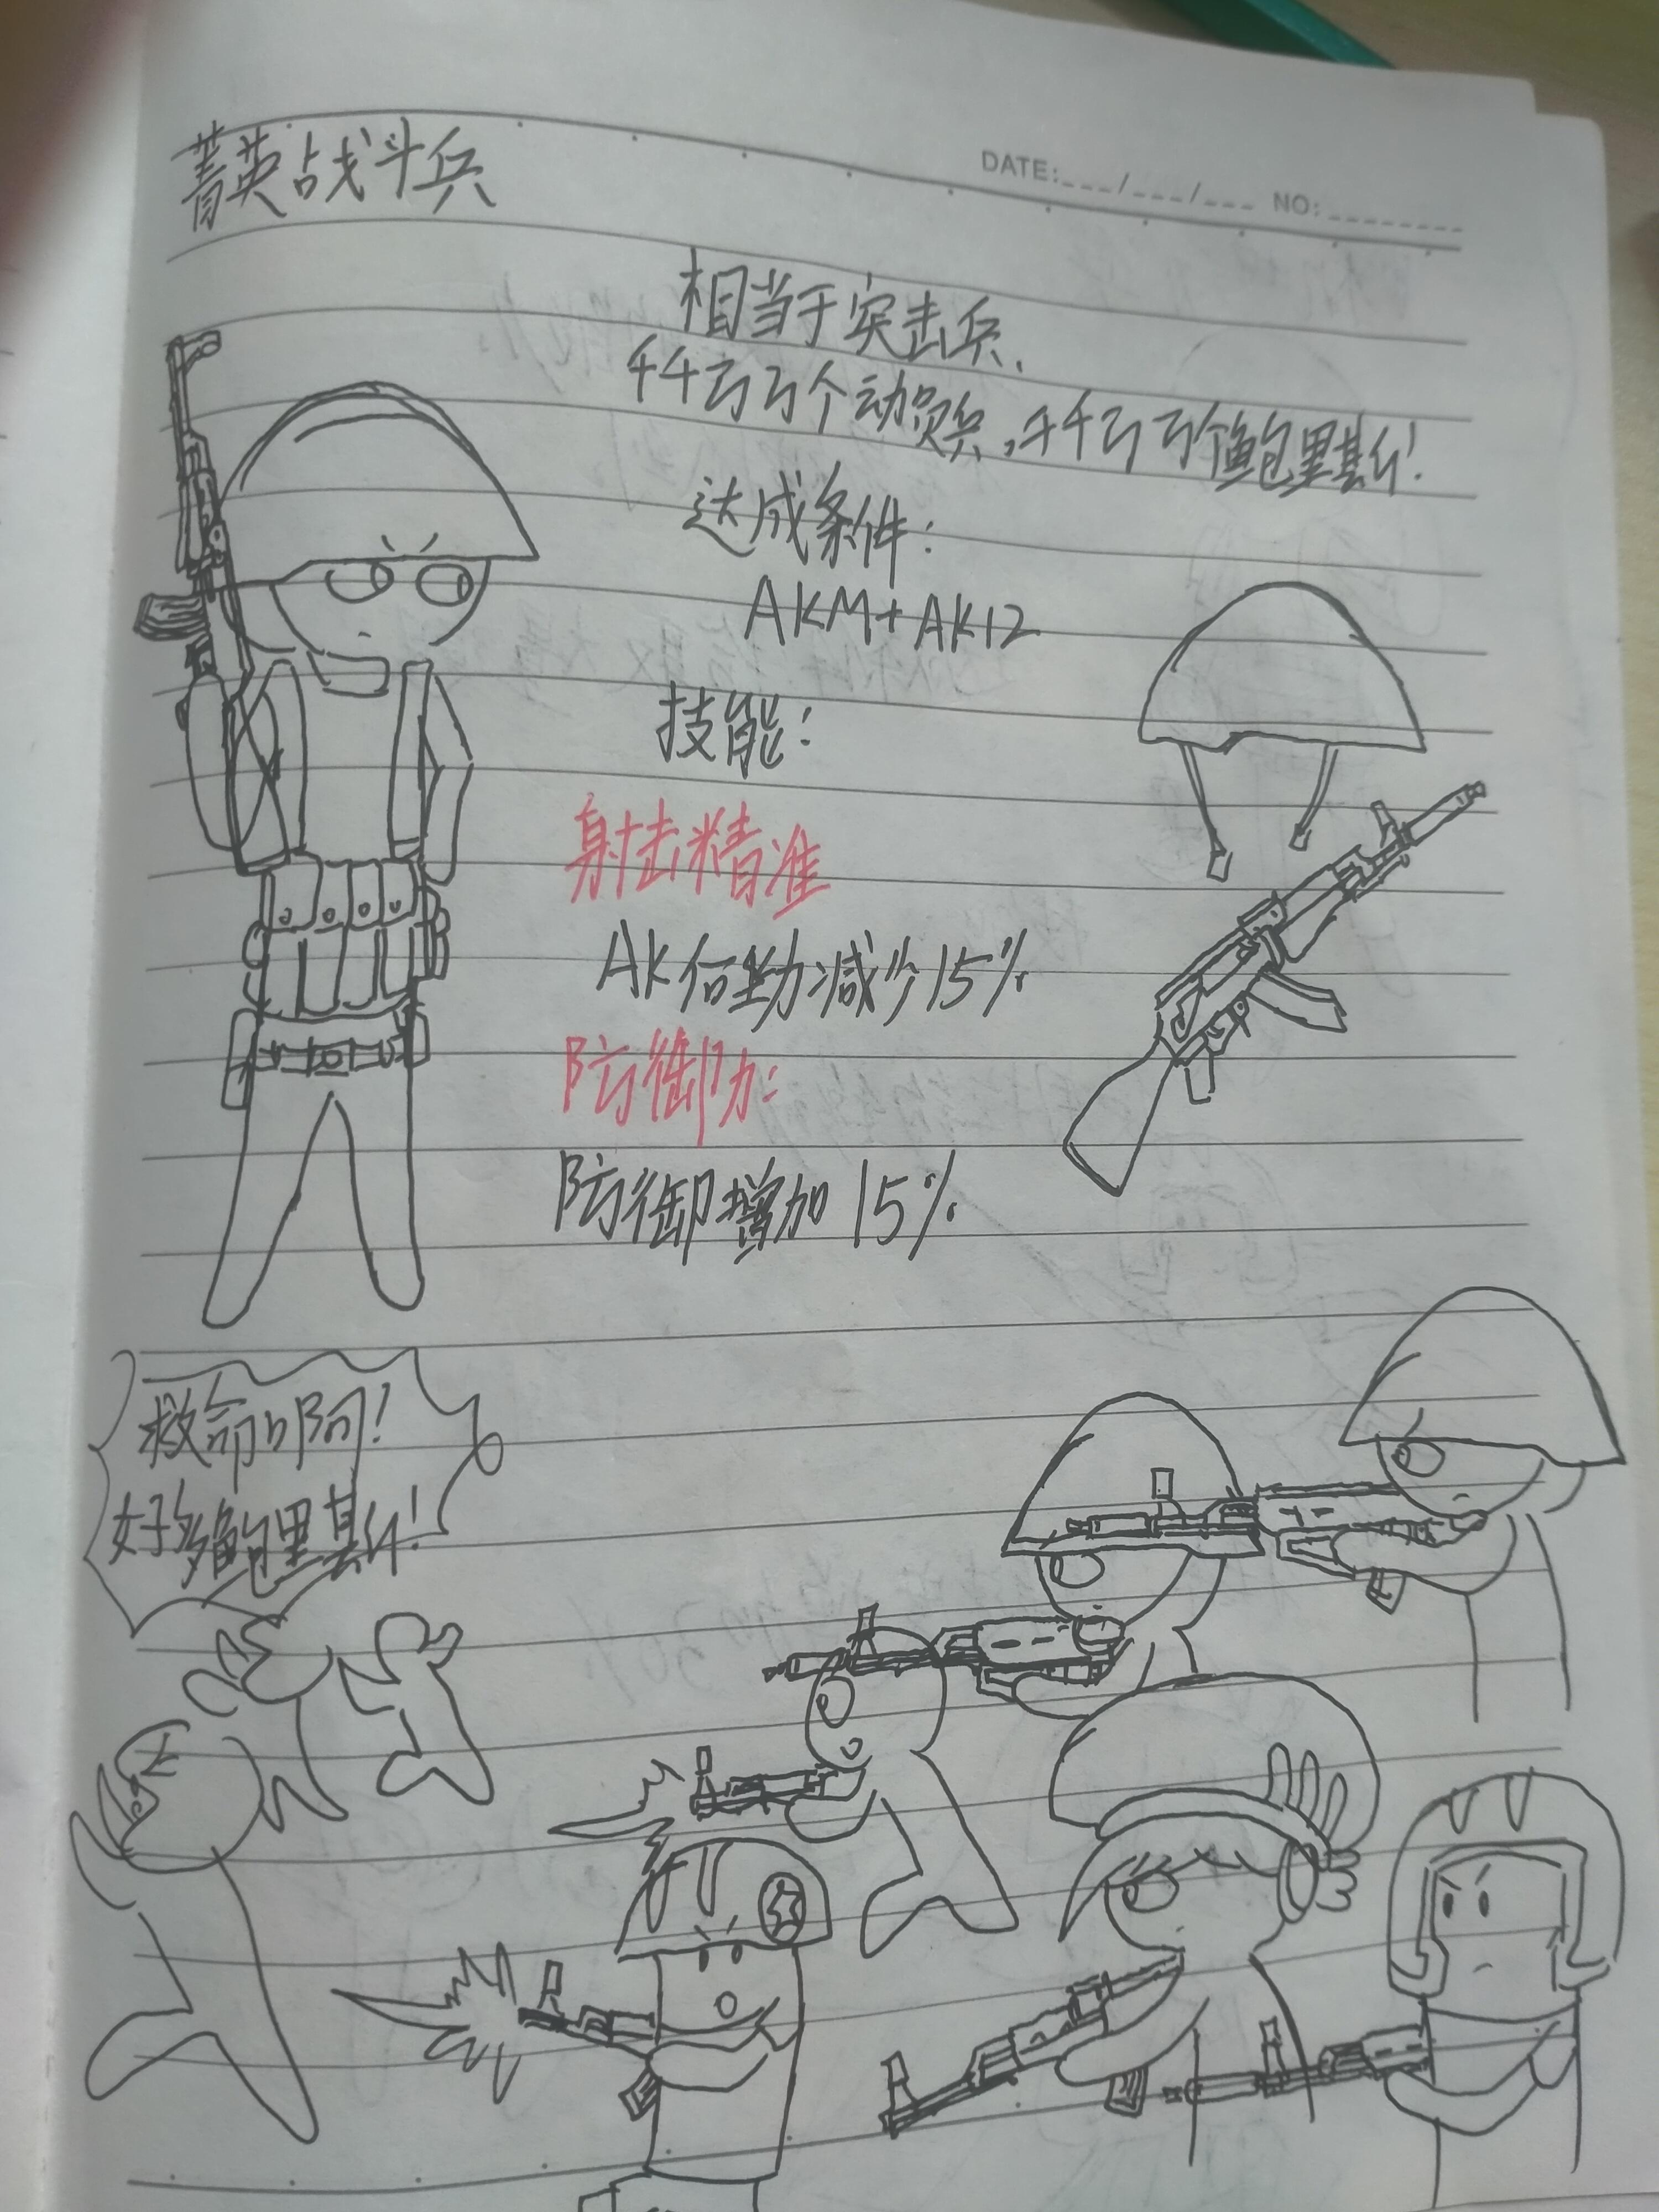 菁英战斗兵
DATE:___/___/___ NO:________
相当于突击兵、
千千万万个动员兵,千千万万个鲍里斯!
达成条件:
AKM+AK12
技能:
射击精准
AK后坐力减少15%
防御力:
防御增加15%
救命啊!
好多鲍里斯!